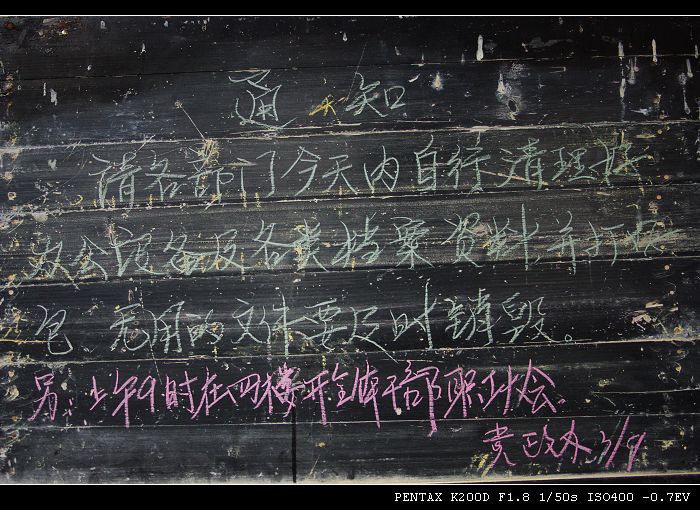 通知
请各部门今天内自行清理好
办公设备及各类档案资料并打好
包，无用的文件要及时销毁。
另：上午9时在四楼开全体干部职工会。
党政办 3/9
PENTAX K200D F1.8 1/50s ISO400 -0.7EV